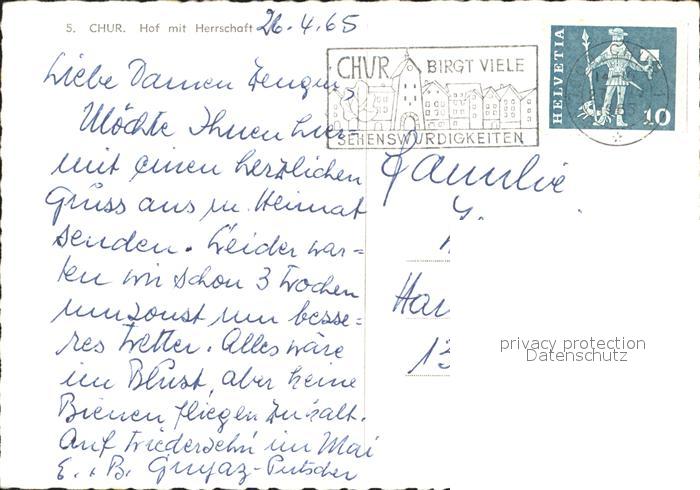 5. CHUR. Hof mit Herrschaft
26.4.65
CHUR BIRGT VIELE
SEHENSWÜRDIGKEITEN
HELVETIA
10
Liebe Damen
Möchte Ihnen hier=
mit einen herzlichen
Gruss aus m. Heimat
senden. Leider war=
ten wir schon 3 Wochen
umsonst um besse=
res Wetter. Alles wäre
im Blust, aber keine
Bienen fliegen zu kalt.
Auf Wiedersehn im Mai
E. . B.
Familie
Han
13
privacy protection
Datenschutz